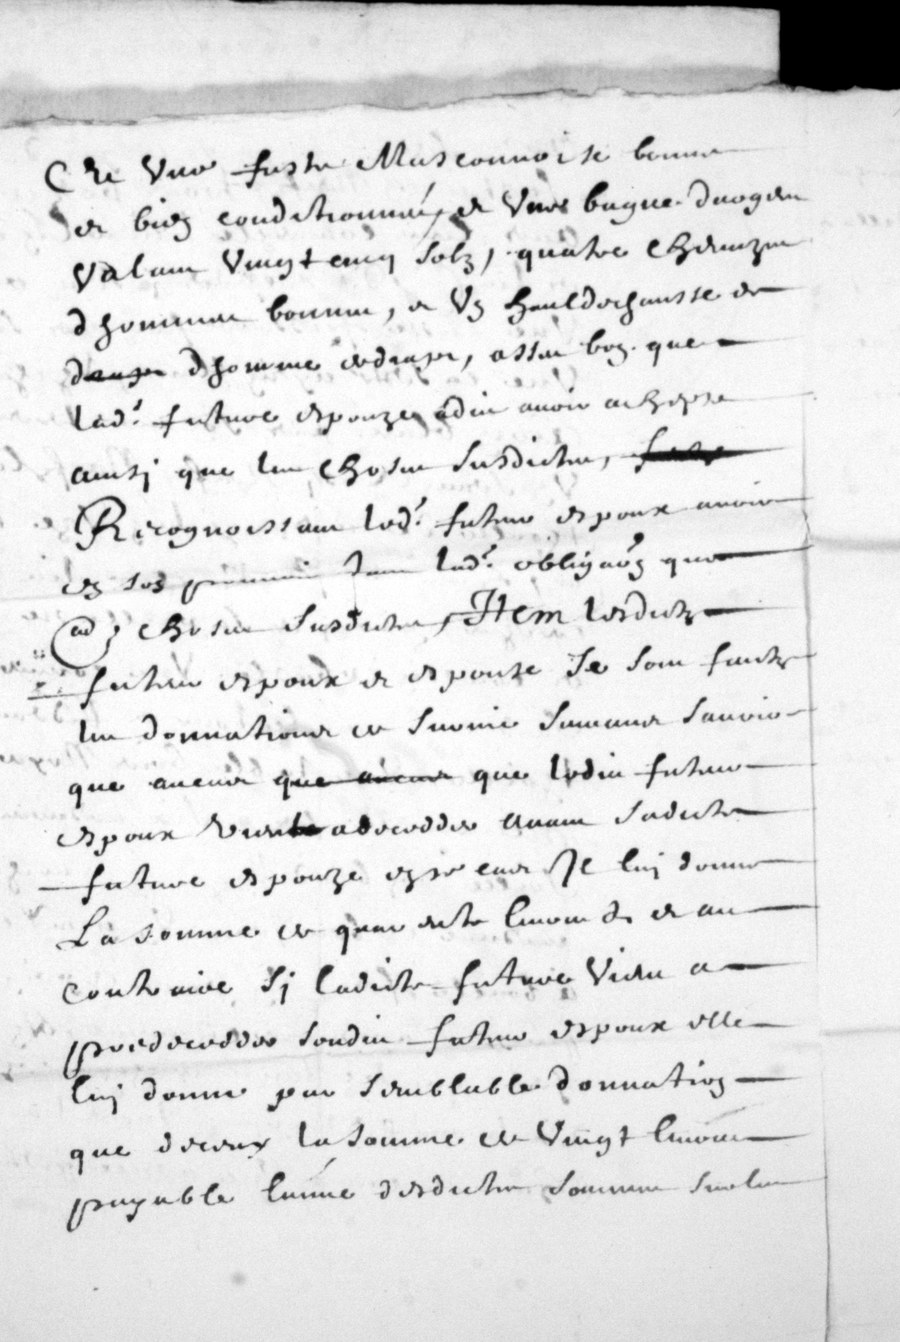 Et Une feste Masconnoise bonne
et bien conditionnée, et Une bague dargent
Valant Vingt cinq solz, quatre chemizes
dhommes bonnes, et Ung hauldechausse de
dhomme de drapt, assez bon que
lad.e future espouze a dit avoir achepte
ainsi que les choses susdictes,
Recognoissant led.t futur espoux avoir
en son led.t obligaon que
choses susdictes, Item lesdictz
futurs espoux et espouse Se sont faictz
les donnations de survie suivante scavoir
que avenant que avenant que ledict futur
espoux vient a decedder avant sadicte
future espouze en ce cas Il luy donne
La somme de quarante livres ts et au
contraire sy ladicte future Vient a
predecedder sondict futur espoux elle
luy donne par semblable donnation
que dessus la somme de Vingt livres
payable lune desdictes sommes sur les